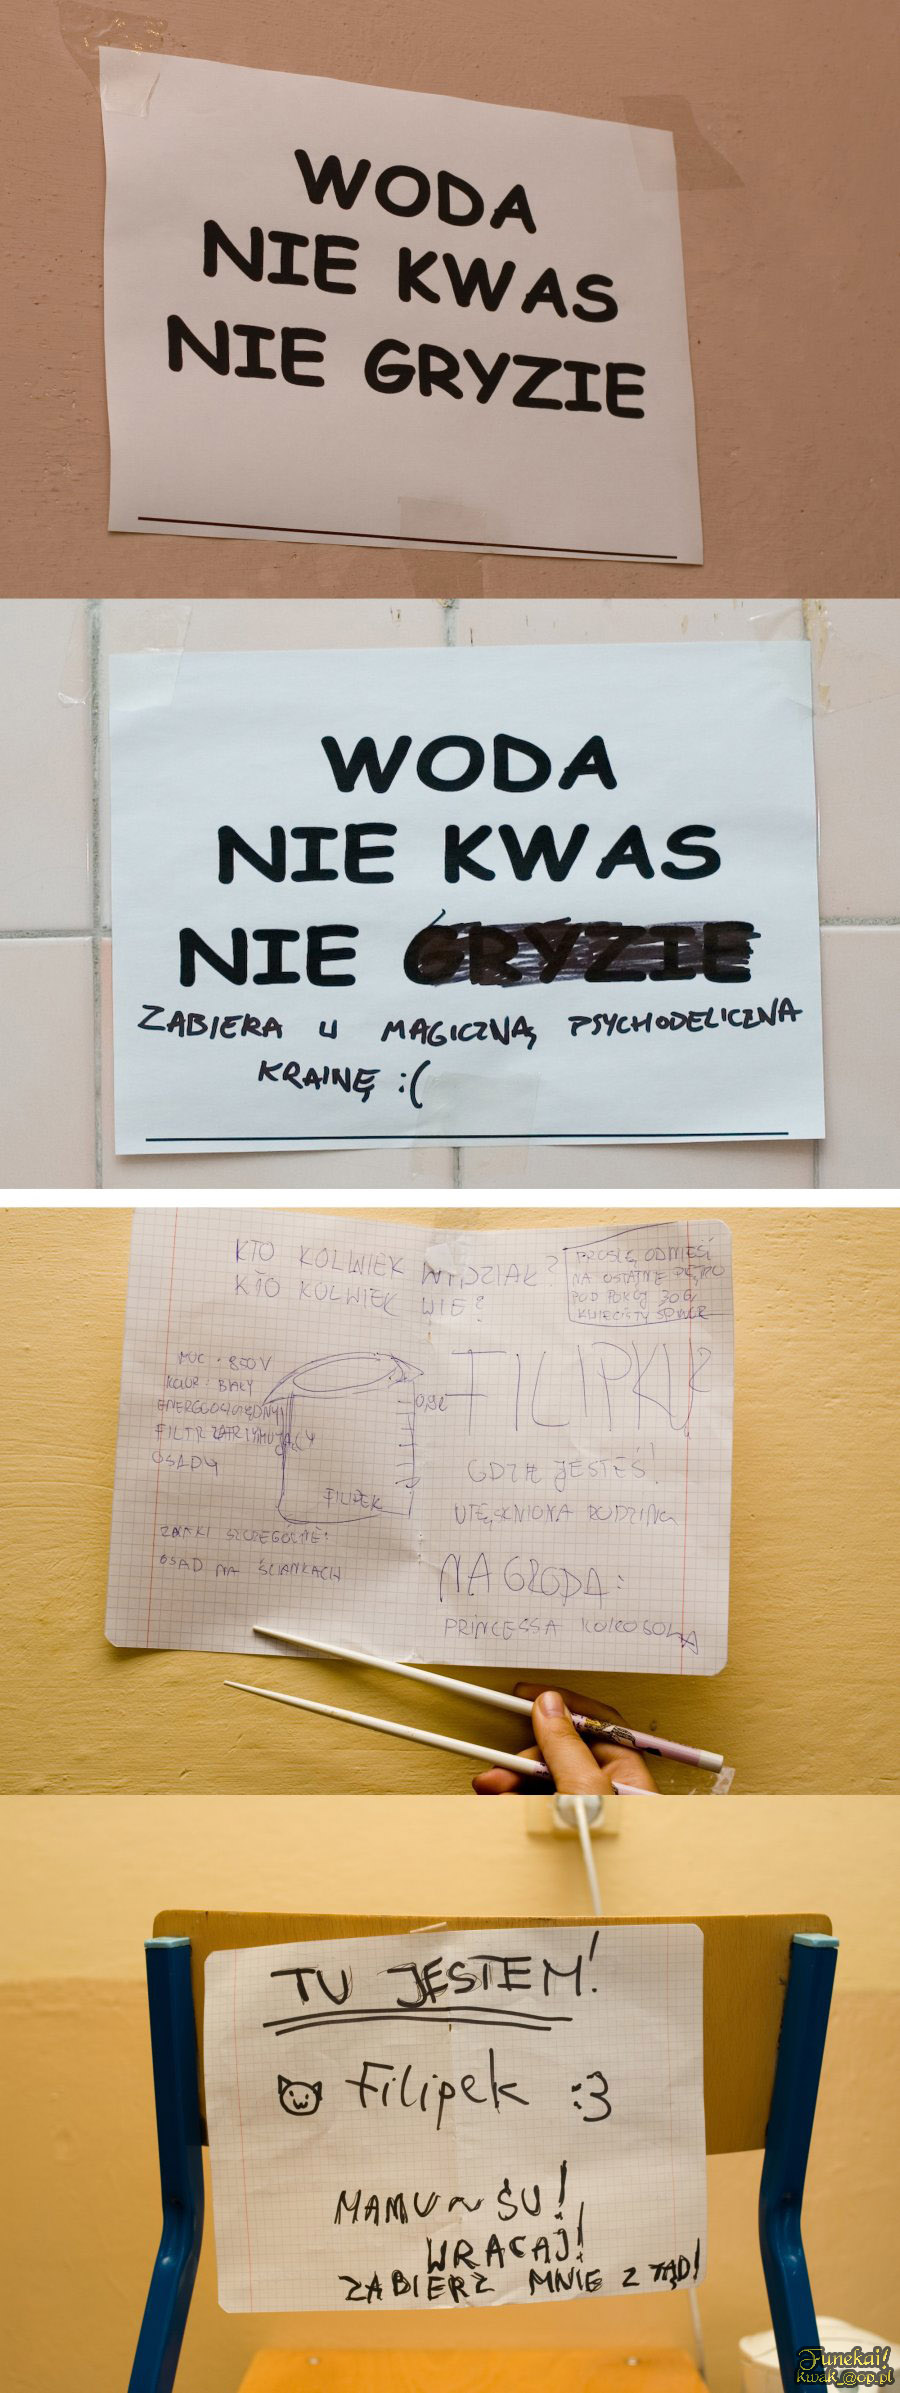 WODA
NIE KWAS
NIE GRYZIE
WODA
NIE KWAS
NIE GRYZIE
ZABIERA W MAGICZNĄ PSYCHODELICZNA
KRAINĘ :(
KTO KOLWIEK WIDZIAŁ?
KTO KOLWIEK WIE?
PROSZĘ ODNIEŚĆ
NA OSTATNIE PIĘTRO
POD POKÓJ 306
KWIECISTY
MOC: 850V
KOLOR: BIAŁY
ENERGOOSZCZĘDNY
FILTR ZATRZYMUJĄCY
OSADY
0,9L
FILIPEK
ZNAKI SZCZEGÓLNE:
OSAD NA ŚCIANKACH
FILIPKU?
GDZIE JESTEŚ!
UTĘSKNIONA RODZINA
NAGRODA:
PRINCESSA KOKOSOWA
TU JESTEM!
Filipek :3
MAMU~ŚU!
WRACAJ!
ZABIERZ MNIE Z TĄD!
Funekai!
kwak_@op.pl